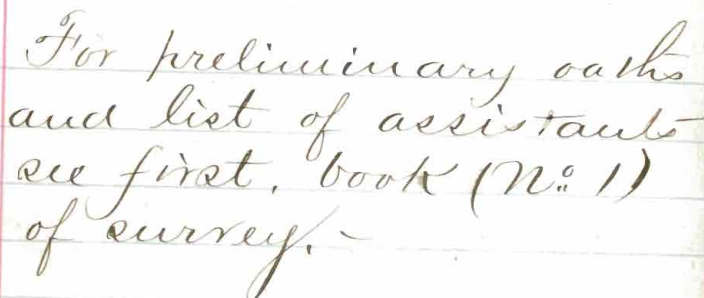 For preliminary oaths
and list of assistants
see first, book (No. 1)
of survey.-